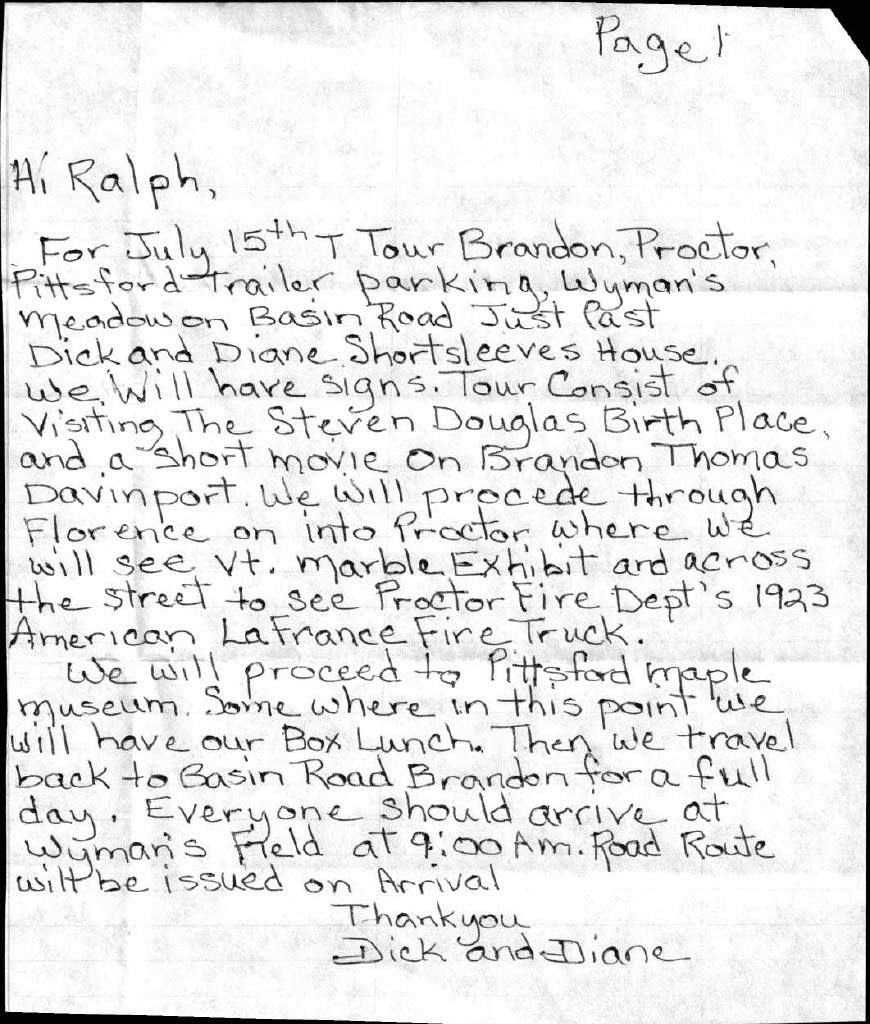 Page 1
Hi Ralph,
For July 15th T Tour Brandon, Proctor,
Pittsford Trailer parking, Wyman's
Meadow on Basin Road Just Past
Dick and Diane Shortsleeves House.
We Will have signs. Tour Consist of
Visiting The Steven Douglas Birth Place,
and a short movie on Brandon Thomas
Davinport. We will procede through
Florence on into Proctor where we
will see Vt. Marble Exhibit and across
the street to see Proctor Fire Dept's 1923
American LaFrance Fire Truck.
We will proceed to Pittsford maple
museum. Some where in this point we
will have our Box Lunch. Then we travel
back to Basin Road Brandon for a full
day. Everyone should arrive at
Wyman's Field at 9:00 Am. Road Route
will be issued on Arrival
Thankyou
Dick and Diane